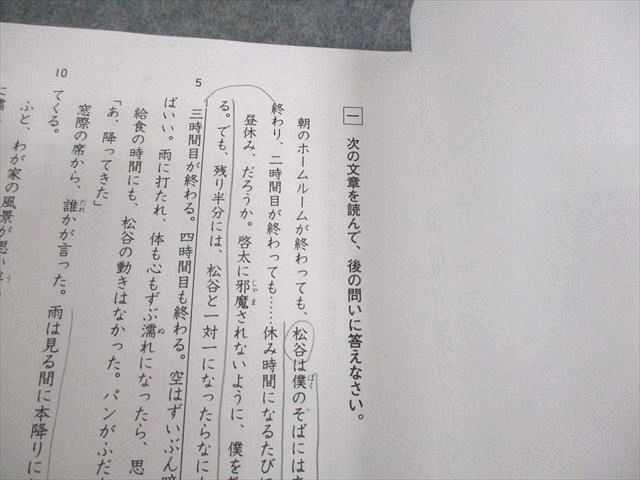 一 次の文章を読んで、後の問いに答えなさい。
朝のホームルームが終わっても、松谷は僕のそばには
終わり、二時間目が終わっても……休み時間になるたびに
昼休み、だろうか。啓太に邪魔されないように、僕を
る。でも、残り半分には、松谷と一対一になったらなに
5
三時間目が終わる。四時間目も終わる。空はずいぶん暗
ばいい。雨に打たれ、体も心もずぶ濡れになったら、思
給食の時間にも、松谷の動きはなかった。パンがふだ
「あ、降ってきた」
窓際の席から、誰かが言った。雨は見る間に本降りに
てくる。
10
ふと、わが家の風景が思い